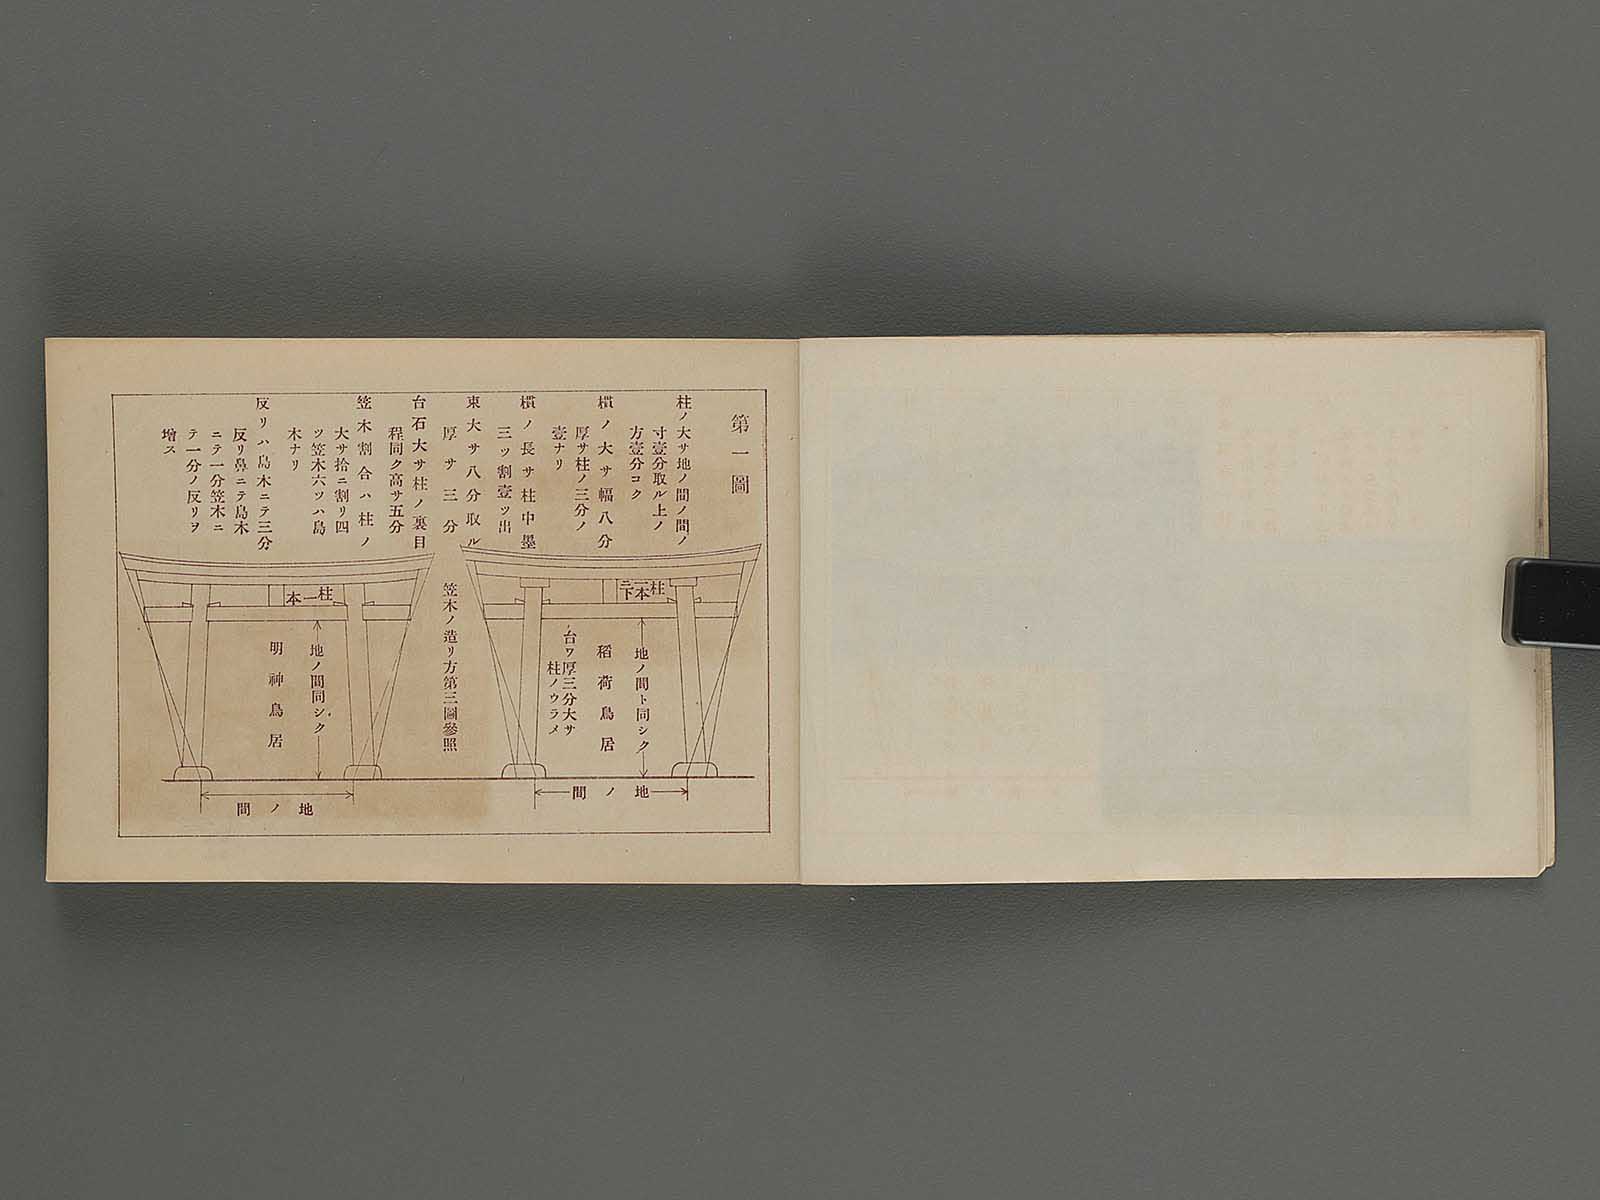 第一圖
柱ノ大サ地ノ間ノ間ノ
寸壹分取ル上ノ
方壹分コク
樌ノ大サ幅八分
厚サ柱ノ三分ノ
壹ナリ
樌ノ長サ柱中墨
三ッ割壹ッ出
束大サ八分取ル
厚サ三分
台石大サ柱ノ裏目
程同ク高サ五分
笠木割合ハ柱ノ
大サ拾ニ割リ四
ツ笠木六ツハ島
木ナリ
反リハ島木ニテ三分
反リ鼻ニテ島木
ニテ一分笠木ニ
テ一分ノ反リヲ
增ス
柱二本下
地ノ間ト同シク
稻荷鳥居
台ワ厚三分大サ
柱ノウラメ
地ノ間
笠木ノ造リ方第三圖參照
柱一本
地ノ間同シク
明神鳥居
地ノ間